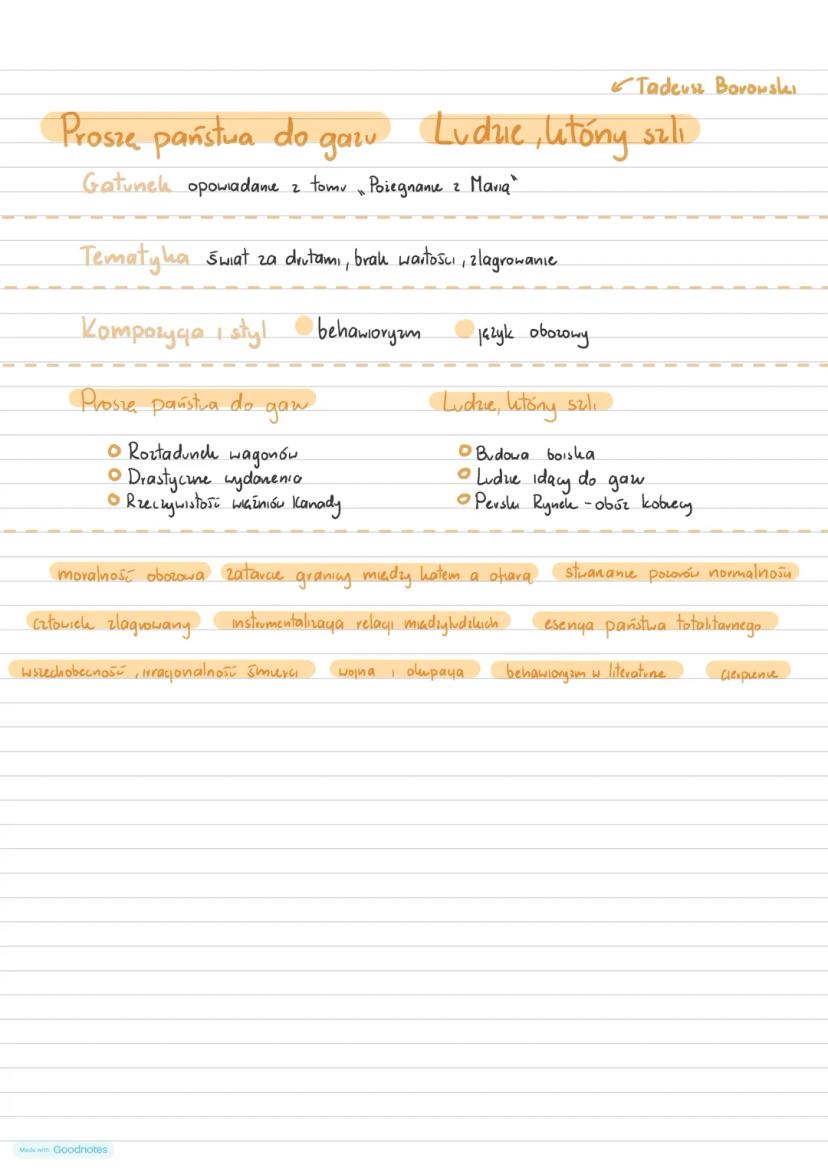 ↙ Tadeusz Borowski
Proszę państwa do gazu Ludzie, którzy szli
Gatunek opowiadanie z tomu „Pożegnanie z Marią”
Tematyka świat za drutami, brak wartości, zlagrowanie
Kompozycja i styl behawioryzm język obozowy
Proszę państwa do gazu Ludzie, którzy szli
Rozładunek wagonów Budowa boiska
Drastyczne wydarzenia Ludzie idący do gazu
Rzeczywistość więźniów Kanady Perski Rynek - obóz kobiecy
moralność obozowa zatarcie granicy między katem a ofiarą stwarzanie pozorów normalności
człowiek zlagrowany instrumentalizacja relacji międzyludzkich esencja państwa totalitarnego
wszechobecność, irracjonalność śmierci wojna i okupacja behawioryzm w literaturze cierpienie
Made with Goodnotes